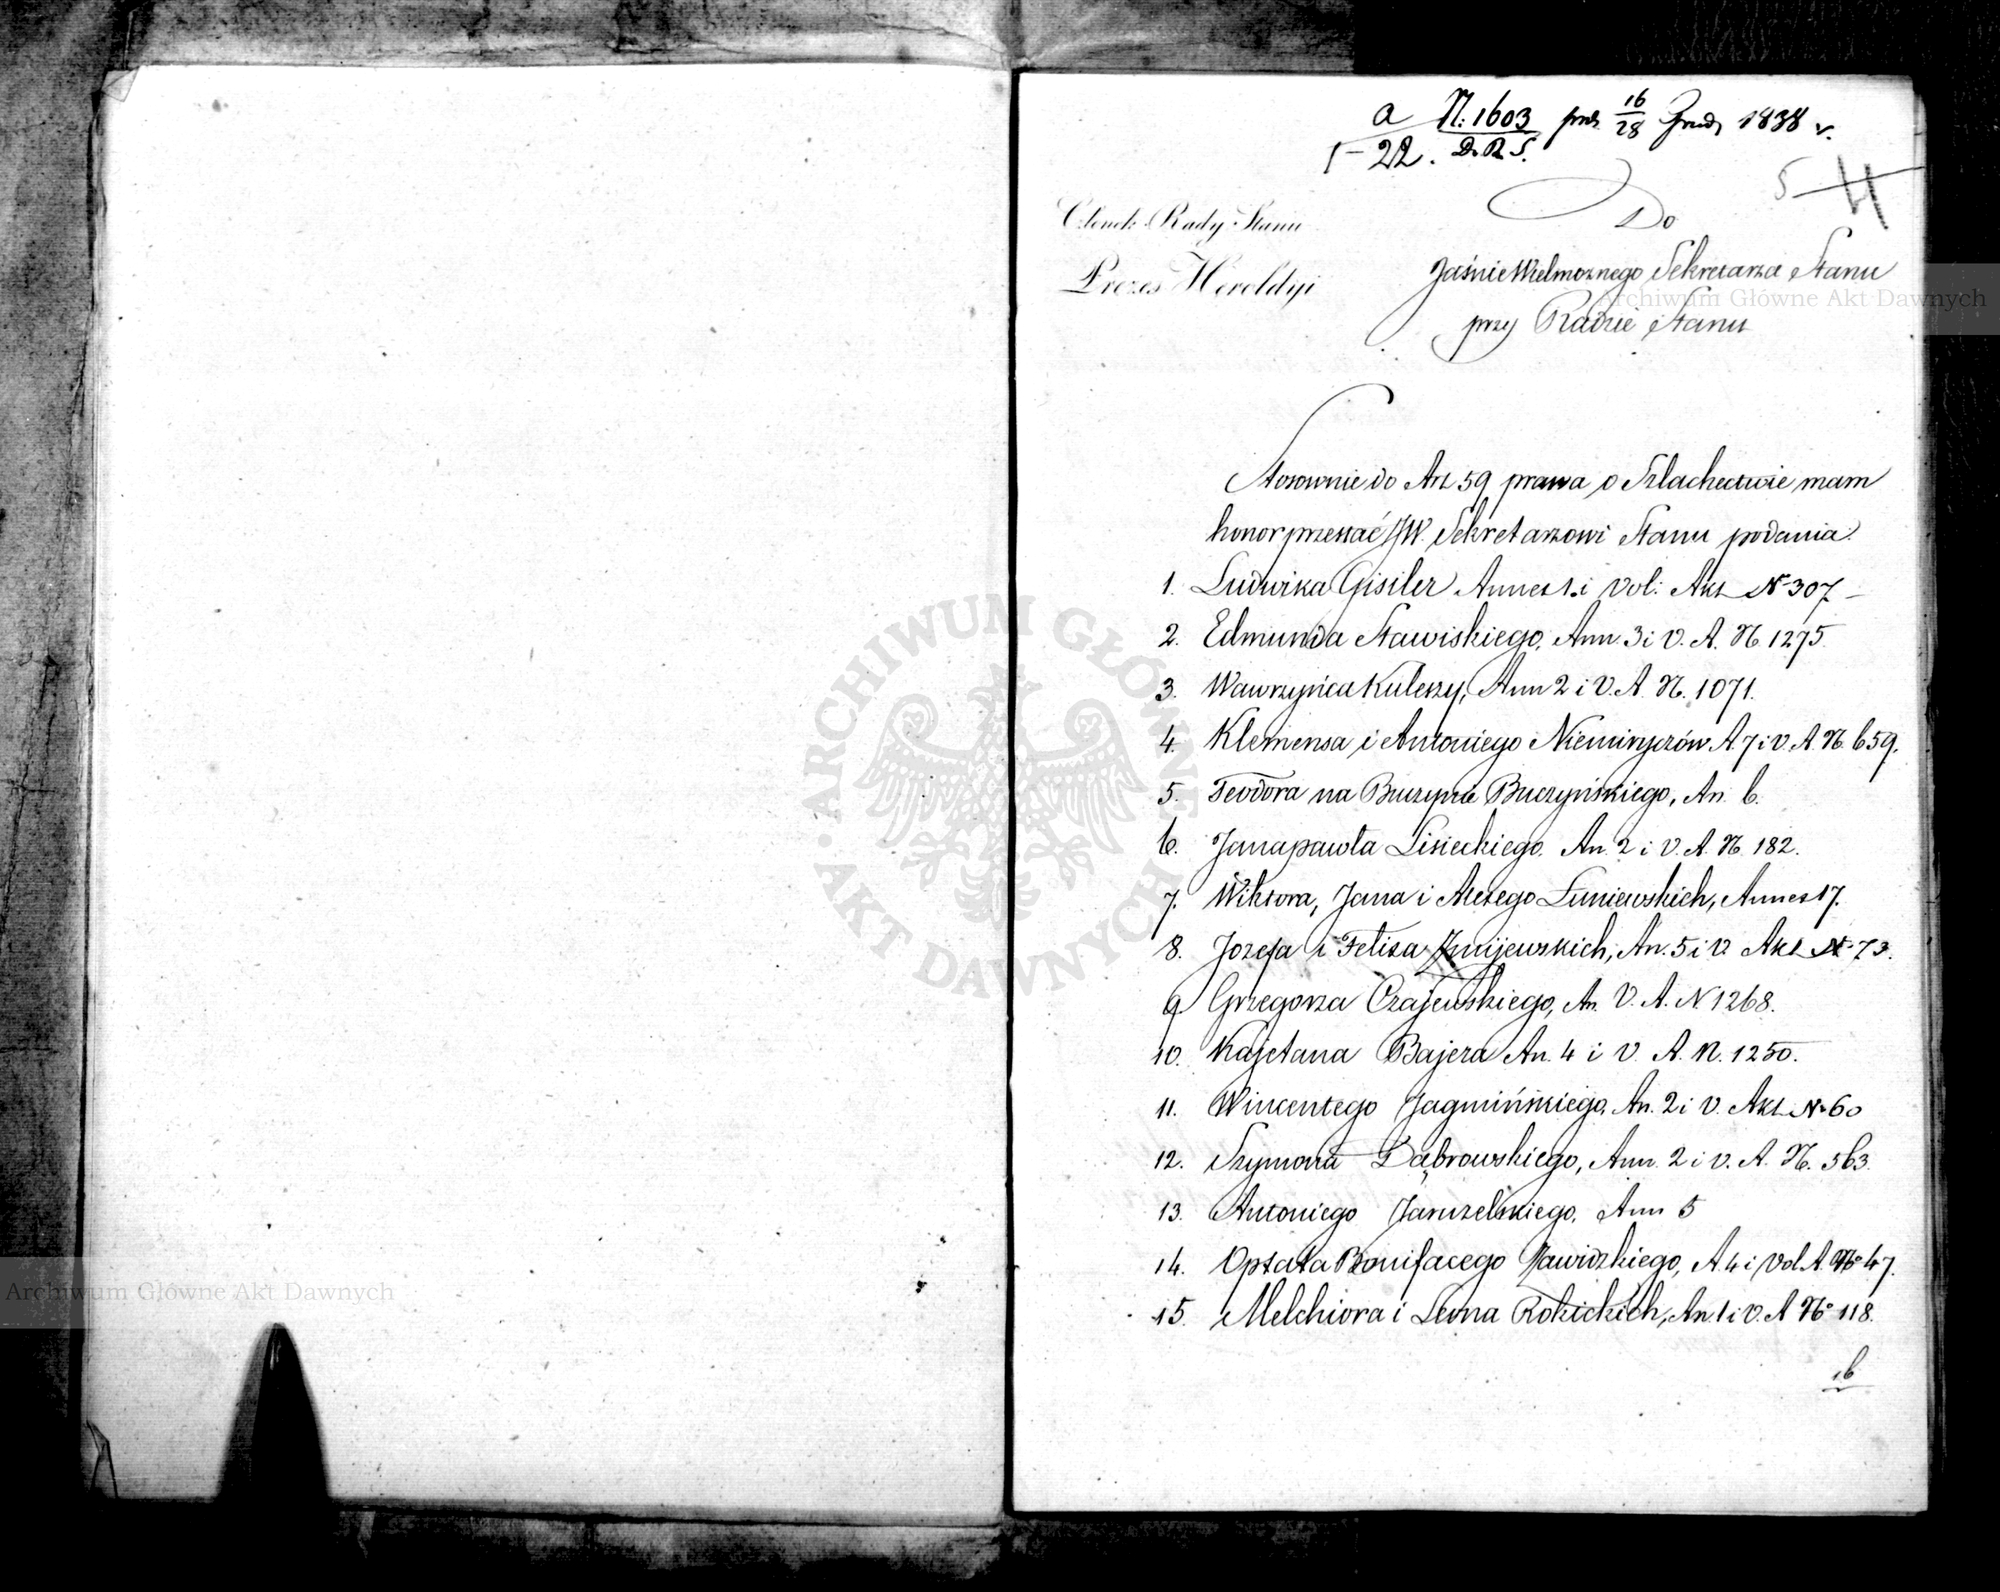 a N: 1603 16/28 1838 r.
1-22. D. R. S.
5
Do
Członek Rady Stanu
Prezes Heroldyi
Jaśnie Wielmożnego Sekretarza Stanu
przy Radzie Stanu
Stosownie do Art 59 prawa o Szlachectwie mam
honor przesłać JW. Sekretarzowi Stanu podania:
1. Ludwika Gisiler Annex 1. i Vol: Akt N 307
2. Edmunda Stawiskiego, Ann. 3 i V. A. N. 1275
3. Wawrzyńca Kuleszy, Ann 2 i V. A. N. 1071.
4. Klemensa i Antoniego Niemiryczów A. 7 i V. A. N. 659.
5. Teodora na Buczynie Buczyńskiego, An. 6.
6. Jana pawła Lisieckiego, An. 2 i V. A. N. 182.
7. Wiktora, Jana i Łuniewskich, Annex 17.
8. Jozefa i Felixa Żmijewskich, An. 5 i V. Akt N 73.
9 Grzegorza Czajewskiego, An. V. A. N 1268.
10. Kajetana Bajera An. 4 i V. A. N. 1250.
11. Wincentego Jagmińskiego, An. 2 i V. Akt N. 60
12. Szymona Dąbrowskiego, Ann. 2 i V. A. N. 563.
13. Antoniego Jaruzelskiego, Ann 5
14. Optata Bonifacego Zawidzkiego, A. 4 i Vol A. No 47.
15. Melchiora i Leona Rokickich, An. 1 i V. A No 118.
16
Archiwum Główne Akt Dawnych
Archiwum Główne Akt Dawnych
ARCHIWUM GŁÓWNE AKT DAWNYCH